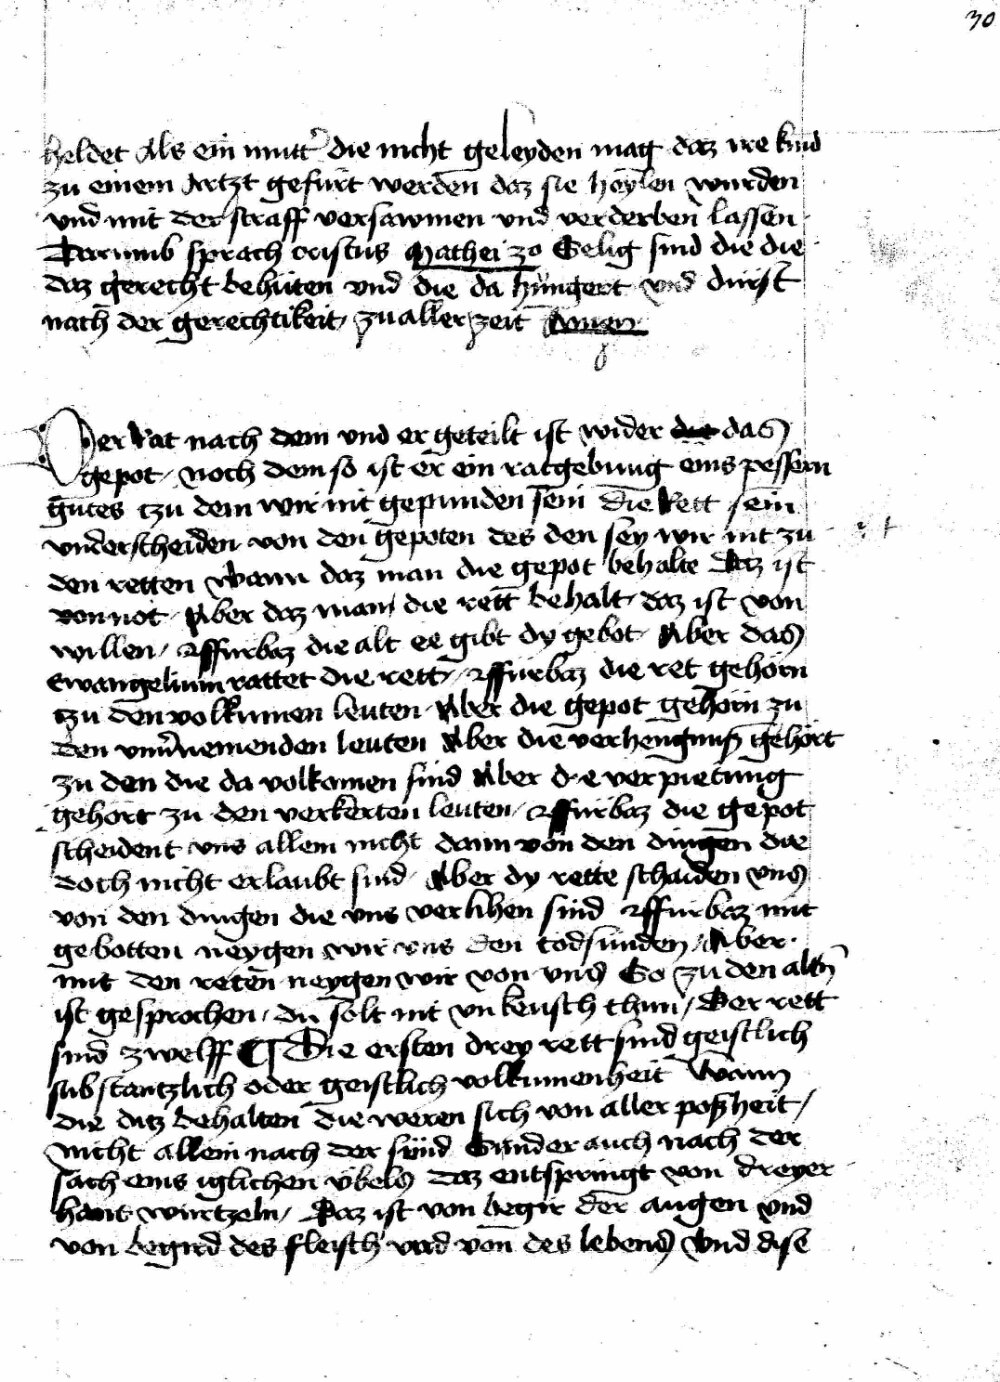 30
heldet Als ein mutt' die nicht geleyden mag daz ire kind
zu einem Artzt gefurt werden daz sie heylen wurden
und mit der straff versawmen und verderben lassen
Darumb sprach cristus Mathei zo Selig sind die die
daz gerecht behüten und die da hungert und dürst
nach der gerechtikeit zu aller zeit Amen
Der Rat nach dem und er geteilt ist wider die das
gepot noch dem so ist er ein ratgebung eins pessern
gutes tzu dem wir nit gepunden sein die Rett sein
underscheiden von den gepoten des den sey wir nit zu
den retten Wann daz man die gepot behalte Daz ist
von not Aber daz man die rett behalt daz ist von
willen / Affurbaz die alt ee gibt dy gebot Aber das
ewangelium rattet die rett / Affurbaz die ret gehorn
tzu den volkumen leuten Aber die gepot gehörn zu
den unnemenden leuten Aber die verhengnuß gehört
zu den die da volkomen sind Aber die verpietung
gehört zu den verkerten leuten / Affurbaz die gepot
scheident uns allein nicht dann von den dingen die
doch nicht erlaubt sind Aber dy rette schaiden uns
von den dingen die uns verlihen sind Affurbaz mit
gebotten neygen wir uns den todsunden / Aber
mit den reten neygen wir von uns So zu den altn
ist gesprochen / du solt nit unkeusch thun / Der rett
sind zwelff ¶ Die ersten drey rett sind geistlich
substantzlich oder geistlich volkumenheit Wann
die ditz behalten die weren sich von aller poßheit /
nicht allein nach der sünd Sunder auch nach der
sach eins iglichen übels daz entspringt von dreyer
hant wurtzeln / Daz ist von begir der augen und
von begird des fleisch und von des lebens Und dise